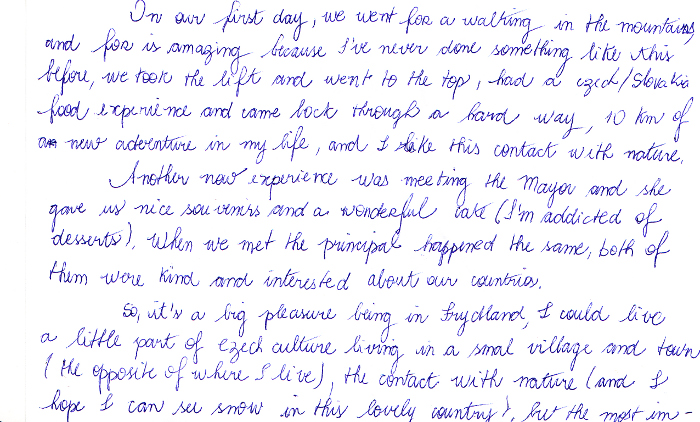 In our first day, we went for a walking in the mountains,
and for is amazing because I've never done something like this
before, we took the lift and went to the top, had a czech/Slovakia
food experience and came back through a hard way, 10 km of
new adventure in my life, and I like this contact with nature.
Another new experience was meeting the Mayor and she
gave us nice souvenirs and a wonderful cake (I'm addicted of
desserts). When we met the principal happened the same, both of
them were kind and interested about our countries.
So, it's a big pleasure being in Frydland, I could live
a little part of czech culture living in a smal village and town
(the opposite of where I live), the contact with nature (and I
hope I can see snow in this lovely country), but the most im-